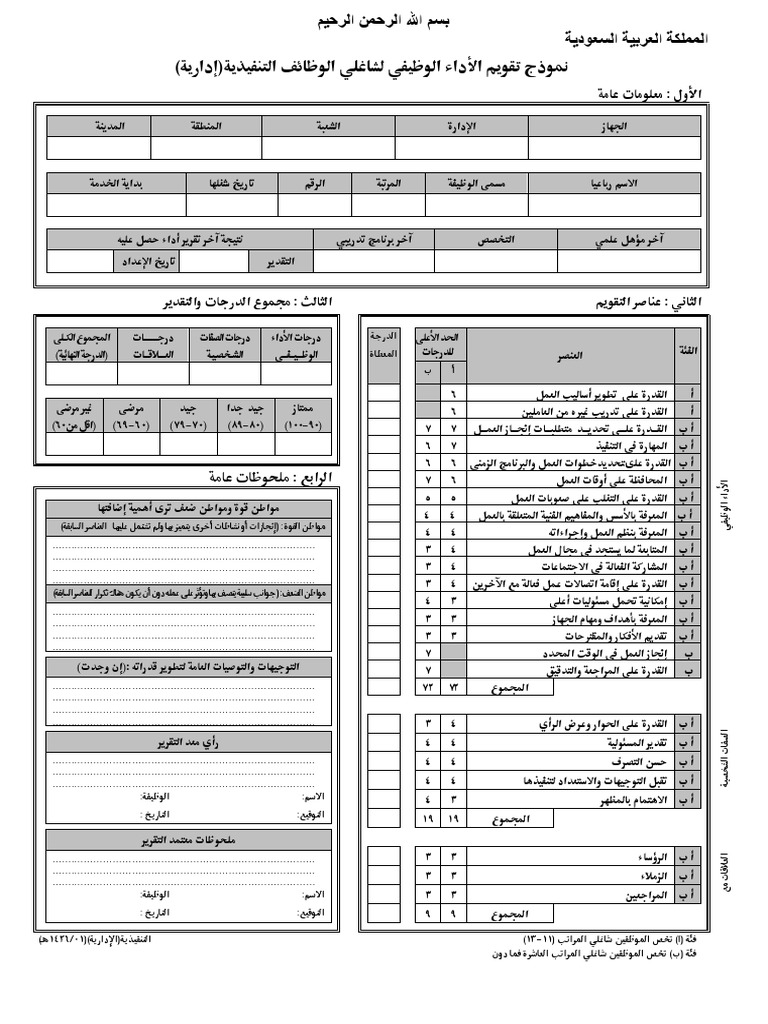 بسم الله الرحمن الرحيم
المملكة العربية السعودية
نموذج تقويم الأداء الوظيفي لشاغلي الوظائف التنفيذية(إدارية)
الأول : معلومات عامة
الجهاز الإدارة الشعبة المنطقة المدينة
الاسم رباعيا مسمى الوظيفة المرتبة الرقم تاريخ شغلها بداية الخدمة
آخر مؤهل علمي التخصص آخر برنامج تدريبي نتيجة آخر تقرير أداء حصل عليه
التقدير تاريخ الإعداد
الثاني : عناصر التقويم
الفئة العنصر الحد الأعلى للدرجات الدرجة المعطاة
أ ب
أ القدرة على تطوير أساليب العمل ٦
أ القدرة على تدريب غيره من العاملين ٦
أ ب القـدرة علـى تحديـد متطلبـات إنجـاز العمـل ٧ ٧
أ ب المهارة في التنفيذ ٧ ٦
أ ب القدرة على تحديد خطوات العمل والبرنامج الزمني ٦ ٦
أ ب المحافظة على أوقات العمل ٦ ٧
أ ب القدرة على التغلب على صعوبات العمل ٥ ٥
أ ب المعرفة بالأسس والمفاهيم الفنية المتعلقة بالعمل ٤ ٤
أ ب المعرفة بنظم العمل وإجراءاته ٤ ٤
أ ب المتابعة لما يستجد في مجال العمل ٤ ٣
أ ب المشاركة الفعالة في الاجتماعات ٤ ٣
أ ب القدرة على إقامة اتصالات عمل فعالة مع الآخرين ٤ ٣
أ ب إمكانية تحمل مسئوليات أعلى ٣ ٤
أ ب المعرفة بأهداف ومهام الجهاز ٣ ٣
أ ب تقديم الأفكار والمقترحات ٣ ٣
ب إنجاز العمل في الوقت المحدد ٧
ب القدرة على المراجعة والتدقيق ٧
المجموع ٧٢ ٧٢
الأداء الوظيفي
أ ب القدرة على الحوار وعرض الرأي ٤ ٣
أ ب تقدير المسئولية ٤ ٤
أ ب حسن التصرف ٤ ٤
أ ب تقبل التوجيهات والاستعداد لتنفيذها ٤ ٤
أ ب الاهتمام بالمظهر ٣ ٤
المجموع ١٩ ١٩
الصفات الشخصية
أ ب الرؤساء ٣ ٣
أ ب الزملاء ٣ ٣
أ ب المراجعين ٣ ٣
المجموع ٩ ٩
العلاقات مع
فئة (ا) تخص الموظفين شاغلي المراتب (١١-١٣)
فئة (ب) تخص الموظفين شاغلي المراتب العاشرة فما دون
الثالث : مجموع الدرجات والتقدير
درجات الأداء الوظيفي درجات الصفات الشخصية درجـــات العـلاقـات المجموع الكلى (الدرجة النهائية)
ممتاز جيد جدا جيد مرضى غير مرضى
(٩٠-١٠٠) (٨٠-٨٩) (٧٠-٧٩) (٦٠-٦٩) (اقل من ٦٠)
الرابع : ملحوظات عامة
مواطن قوة ومواطن ضعف ترى أهمية إضافتها
مواطن القوة: (إنجازات أو نشاطات أخرى يتميز بها ولم تشتمل عليها العناصر السابقة)
مواطن الضعف: (جوانب سلبية يتصف بها وتؤثر على عمله دون أن يكون هناك تكرار للعناصر السابقة)
التوجيهات والتوصيات العامة لتطوير قدراته :(إن وجدت)
رأي معد التقرير
الاسم: الوظيفة:
التوقيع: التاريخ :
ملحوظات معتمد التقرير
الاسم: الوظيفة:
التوقيع: التاريخ :
التنفيذية(الإدارية)(١٤٢٦/٠١هـ)